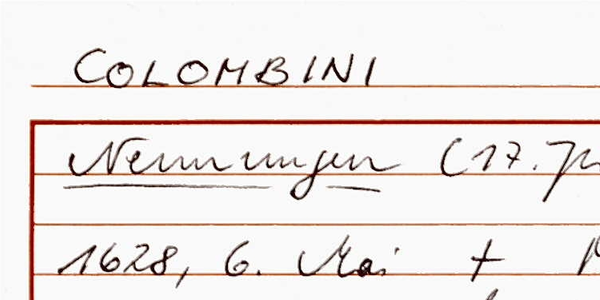 COLOMBINI
Nennungen (17.
1628, 6. Mai +